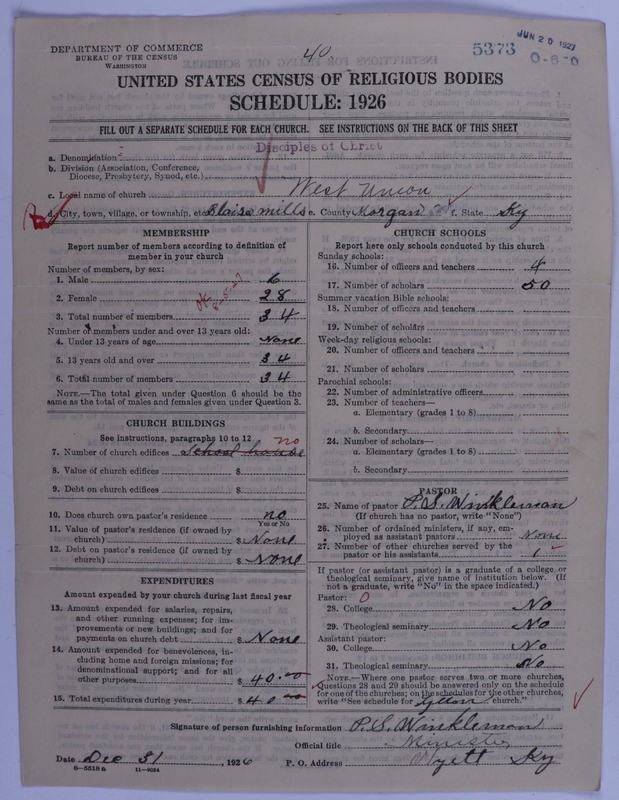 DEPARTMENT OF COMMERCE
BUREAU OF THE CENSUS
WASHINGTON
40
5373
JUN 20 1927
0-6-0
UNITED STATES CENSUS OF RELIGIOUS BODIES
SCHEDULE: 1926
FILL OUT A SEPARATE SCHEDULE FOR EACH CHURCH. SEE INSTRUCTIONS ON THE BACK OF THIS SHEET
Disciples of Christ
a. Denomination
b. Division (Association, Conference,
Diocese, Presbytery, Synod, etc.)
c. Local name of church West Union
d. City, town, village, or township, etc. Blaise mills e. County Morgan f. State Ky
MEMBERSHIP
Report number of members according to definition of
member in your church
Number of members, by sex:
1. Male 6
2. Female 28
3. Total number of members 34
Number of members under and over 13 years old:
4. Under 13 years of age None
5. 13 years old and over 34
6. Total number of members 34
NOTE.—The total given under Question 6 should be the
same as the total of males and females given under Question 3.
CHURCH BUILDINGS
See instructions, paragraphs 10 to 12
no
7. Number of church edifices School house
8. Value of church edifices $
9. Debt on church edifices $
10. Does church own pastor's residence no
Yes or No
11. Value of pastor's residence (if owned by
church) $ None
12. Debt on pastor's residence (if owned by
church) $ None
EXPENDITURES
Amount expended by your church during last fiscal year
13. Amount expended for salaries, repairs,
and other running expenses; for im-
provements or new buildings; and for
payments on church debt $ None
14. Amount expended for benevolences, in-
cluding home and foreign missions; for
denominational support; and for all
other purposes $ 40.00
15. Total expenditures during year $ 40 00
CHURCH SCHOOLS
Report here only schools conducted by this church
Sunday schools:
16. Number of officers and teachers 4
17. Number of scholars 50
Summer vacation Bible schools:
18. Number of officers and teachers
19. Number of scholars
Week-day religious schools:
20. Number of officers and teachers
21. Number of scholars
Parochial schools:
22. Number of administrative officers
23. Number of teachers—
a. Elementary (grades 1 to 8)
b. Secondary
24. Number of scholars—
a. Elementary (grades 1 to 8)
b. Secondary
PASTOR
25. Name of pastor P. S. Winkleman
(If church has no pastor, write "None")
26. Number of ordained ministers, if any, em-
ployed as assistant pastors None
27. Number of other churches served by the
pastor or his assistants 1
If pastor (or assistant pastor) is a graduate of a college or
theological seminary, give name of institution below. (If
not a graduate, write "No" in the space indicated.)
Pastor: 0
28. College No
29. Theological seminary No
Assistant pastor:
30. College No
31. Theological seminary No
NOTE.—Where one pastor serves two or more churches,
Questions 28 and 29 should be answered only on the schedule
for one of the churches; on the schedules for the other churches,
write "See schedule for church."
Signature of person furnishing information P. S. Winkleman
Official title Minister
Date Dec 31, 1926 P. O. Address Ky
8—5518 a 11—9024